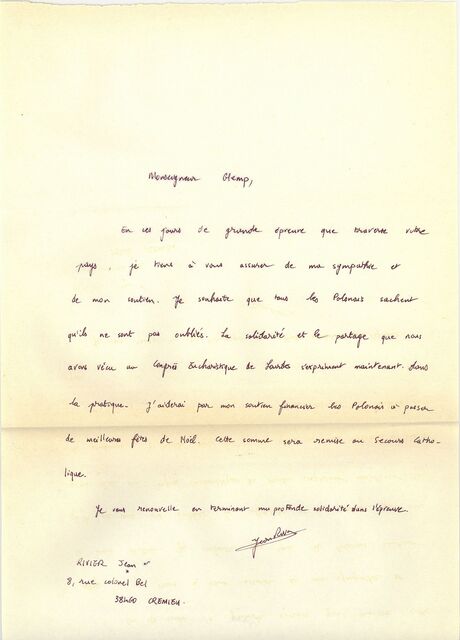 Monseigneur Glemp,
En ces jours de grande épreuve que traverse votre
pays, je tiens à vous assurer de ma sympathie et
de mon soutien. Je souhaite que tous les Polonais sachent
qu'ils ne sont pas oubliés. La solidarité et le partage que nous
avons vécu au Congrès Eucharistique de Lourdes s'expriment maintenant dans
la pratique. J'aiderai par mon soutien financier les Polonais à passer
de meilleures fêtes de Noël. Cette somme sera remise au Secours Catho-
lique.
Je vous renouvelle en terminant ma profonde solidarité dans l'épreuve.
RIVIER Jean
8, rue colonel Bel
38460 CREMIEU.